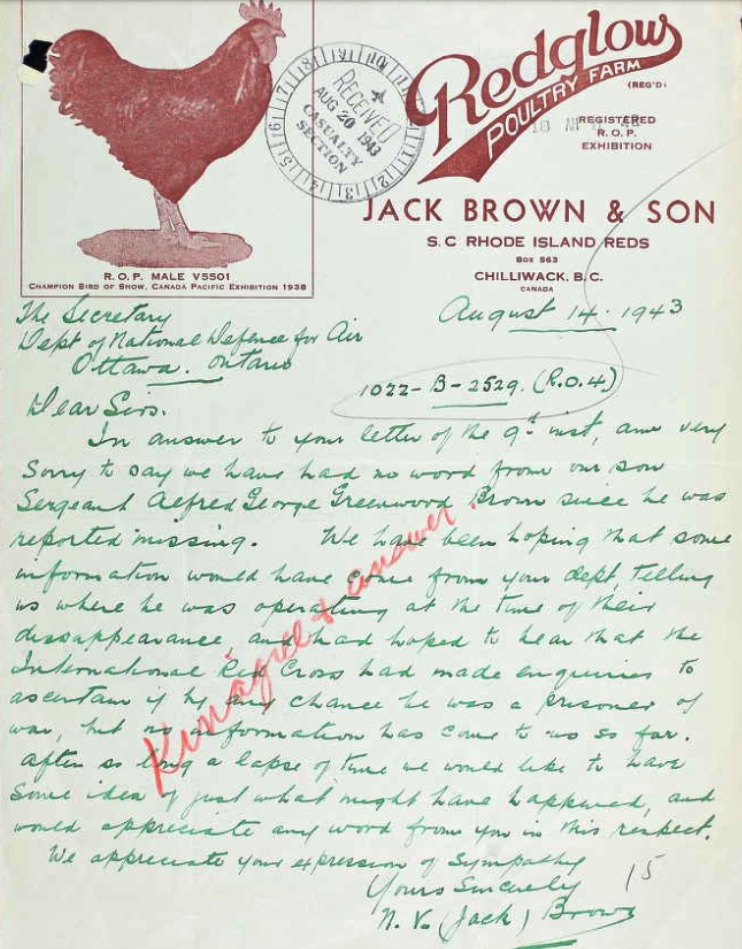 Redglow
POULTRY FARM
(REG'D)
REGISTERED
R.O.P.
EXHIBITION
RECEIVED
AUG 20 1943
CASUALTY
SECTION
JACK BROWN & SON
S.C RHODE ISLAND REDS
BOX 563
CHILLIWACK, B.C.
CANADA
R.O.P. MALE V5501
CHAMPION BIRD OF SHOW, CANADA PACIFIC EXHIBITION 1938
August 14. 1943
The Secretary
Dept of National Defence for Air
Ottawa. Ontario
1022-B-2529. (R.O.4)
Dear Sirs.
In answer to your letter of the 9th inst, am very
sorry to say we have had no word from our son
Sergeant Alfred George Greenwood Brown since he was
reported missing. We have been hoping that some
information would have come from your dept, telling
us where he was operating at the time of their
dissappearance, and had hoped to hear that the
International Red Cross had made enquiries to
ascertain if by any chance he was a prisoner of
war, but no information has come to us so far.
After so long a lapse of time we would like to have
some idea of just what might have happened, and
would appreciate any word from you in this respect.
We appreciate your expression of Sympathy
Yours Sincerely
N. V. (Jack) Brown
15